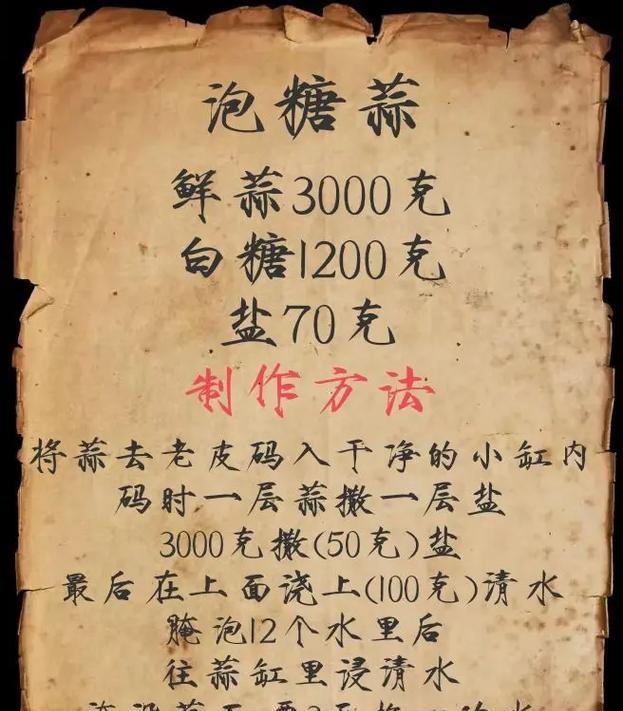 泡糖蒜
鲜蒜3000克
白糖1200克
盐70克
制作方法
将蒜去老皮码入干净的小缸内
码时一层蒜撒一层盐
3000克撒(50克)盐
最后在上面浇上(100克)清水
腌泡12个水里后
往蒜缸里浸清水